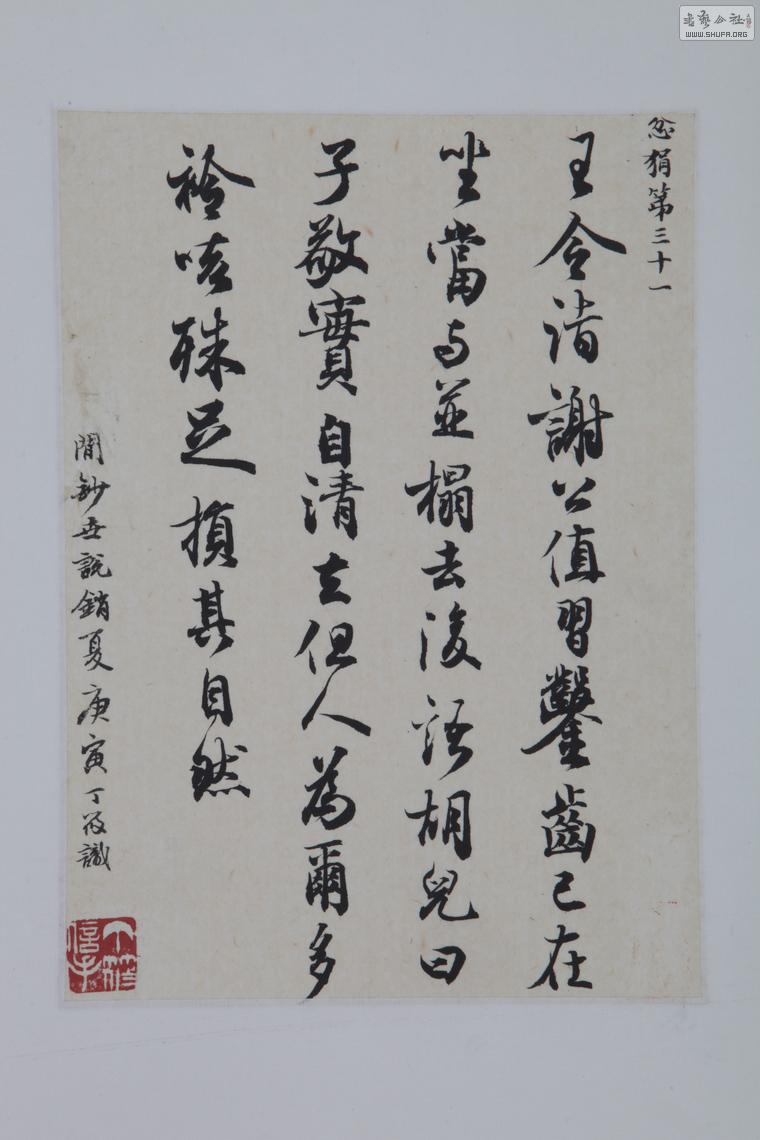 書藝公社
WWW.SHUFA.ORG
忿狷第三十一
王令詣謝公值習鑿齒已在
坐當与並榻去後語胡兒曰
子敬實自清立但人為爾多
衿咳殊足損其自然
閒鈔世說銷夏庚寅丁筱識